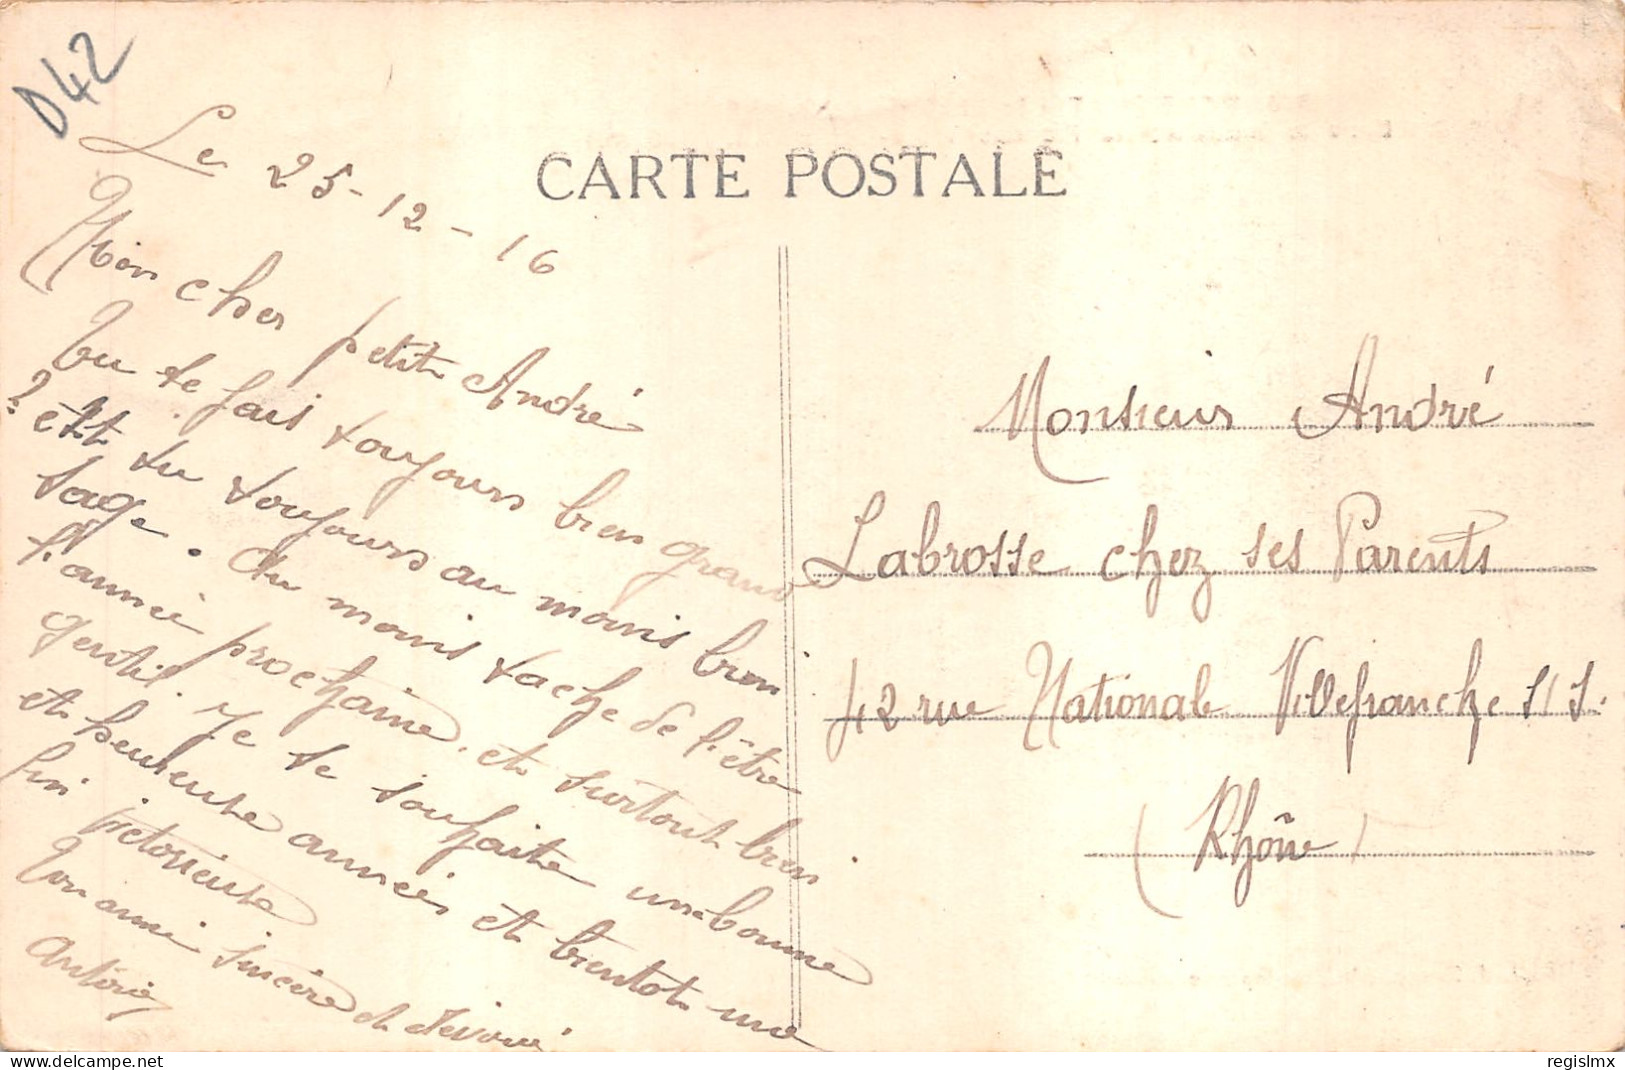 D42
CARTE POSTALE
Le 25-12-16
Mon cher petit André
Tu te fais toujours bien grand
? est tu toujours au moins bien
sage. au moins tache de l'être
l'année prochaine. et surtout bien
gentil. Je te souhaite une bonne
et heureuse année et bientot une
fin victorieuse
Ton ami sincère et dévoué
Monsieur André
Labrosse chez ses Parents
42 rue Nationale Villefranche s/s.
(Rhône)
regislmx